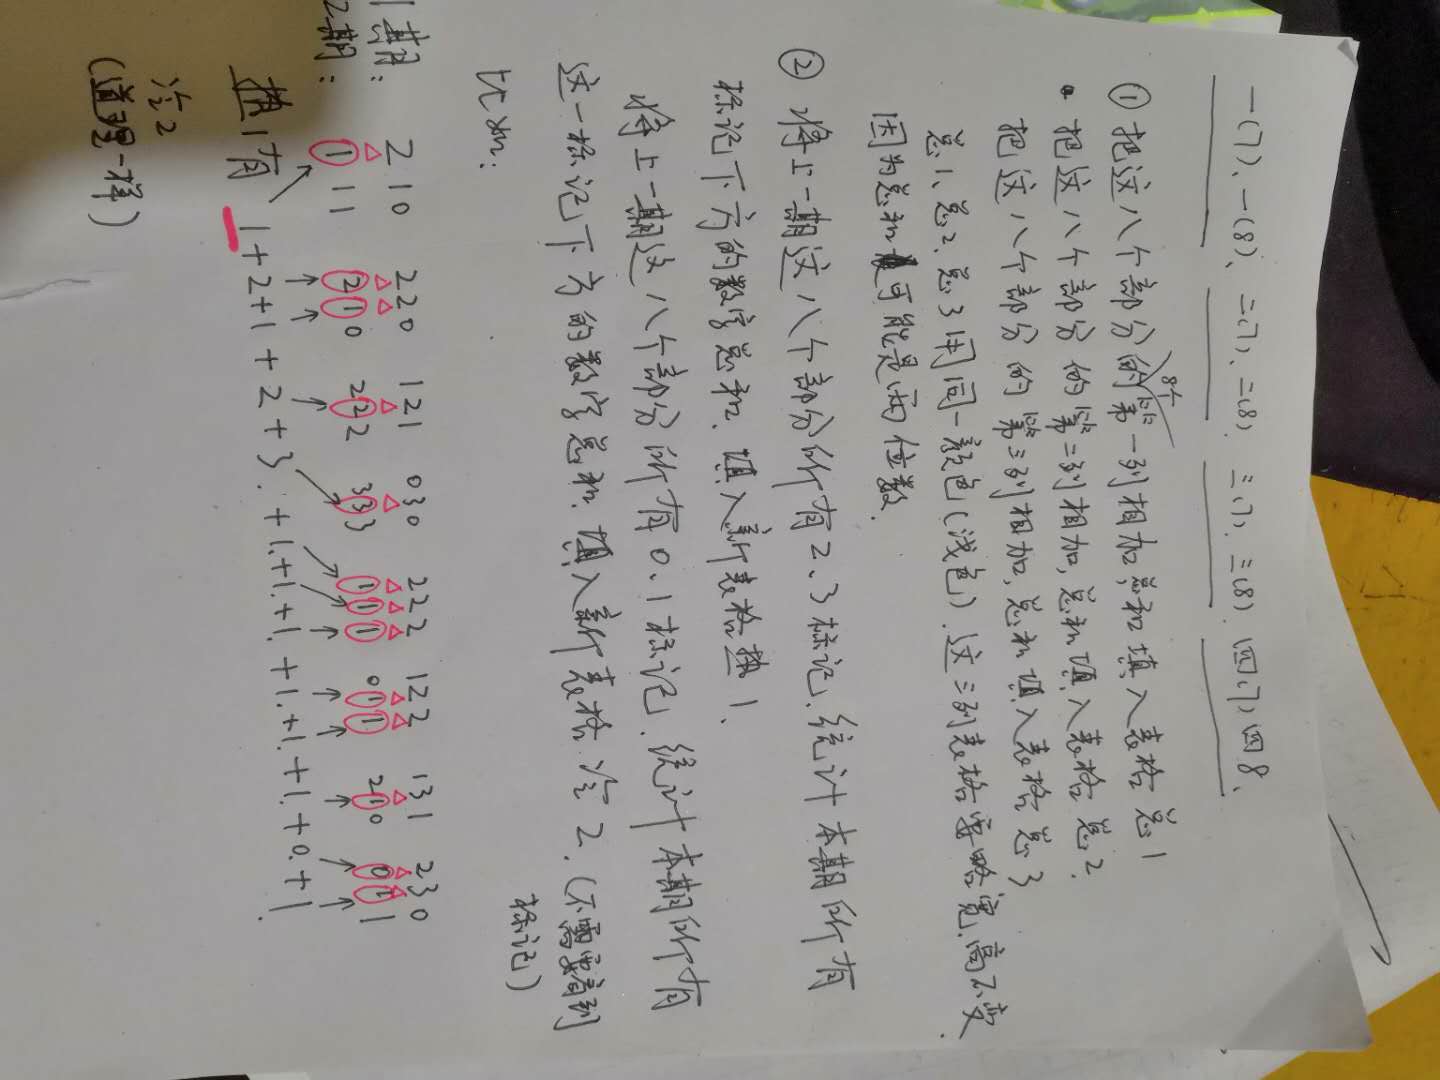 一(7)、一(8)、二(7)、二(8)、三(7)、三(8)、四(7)、四8、
8个
① 把这八个部分的第一列相加，总和填入表格总1
把这八个部分的第二列相加，总和填入表格总2.
把这八个部分的第三列相加，总和填入表格总3
总1、总2、总3用同一颜色(浅色).这三列表格要略宽.高不变.
因为总和可能是两位数.
② 将上一期这八个部分所有2、3标记，统计本期所有
标记下方的数字总和.填入新表格热1.
将上一期这八个部分所有0.1标记.统计本期所有
这一标记下方的数字总和.填入新表格冷2.(不需要看到
标记)
比如:
1期: 210 220 121 030 222 122 131 230
2期: 111 210 222 333 111 011 210 011
热1有 1+2+1+2+3.+1.+1.+1.+1.+1.+1.+0.+1.
冷2
(道理一样)